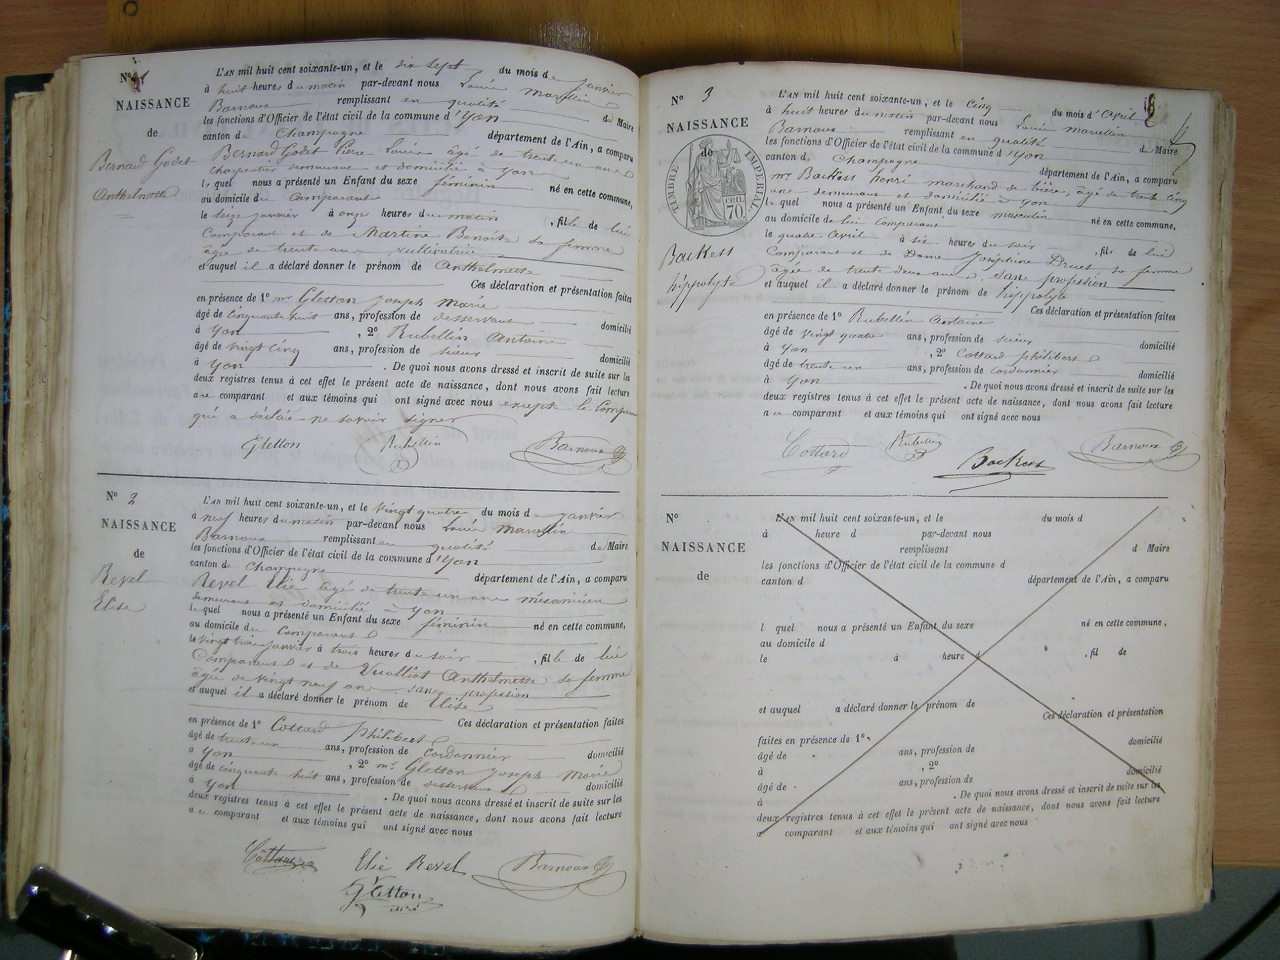 N° 1
NAISSANCE
de
Bernard Godet
Anthelmette
L'AN mil huit cent soixante-un, et le dix sept du mois de janvier
à huit heures du matin par-devant nous Louis Marcellin
Barnoux remplissant en qualité de Maire
les fonctions d'Officier de l'état civil de la commune d'Yon
canton de Champagne département de l'Ain, a comparu
Bernard Godet Pierre Louis âgé de trente un ans
charpentier demeurant et domicilié à Yon
lequel nous a présenté un Enfant du sexe féminin né en cette commune,
au domicile du comparant
le seize janvier à onze heures du matin, fille de lui
Comparant et de Martine Benoite sa femme
âgée de trente un cultivatrice
et auquel il a déclaré donner le prénom de Anthelmette
Ces déclaration et présentation faites
en présence de 1° Mr Gletton Joseph Marie
âgé de cinquante huit ans, profession de desservant domicilié
à Yon, 2° Rubellin Antoine
âgé de vingt cinq ans, profession de sieur domicilié
à Yon. De quoi nous avons dressé et inscrit de suite sur les
deux registres tenus à cet effet le présent acte de naissance, dont nous avons fait lecture
au comparant et aux témoins qui ont signé avec nous excepté le Comparant
qui a déclaré ne savoir signer
Gletton Rubellin Barnoux
N° 2
NAISSANCE
de
Revel
Elise
L'AN mil huit cent soixante-un, et le vingt quatre du mois d janvier
à neuf heures du matin par-devant nous Louis Marcellin
Barnoux remplissant en qualité de Maire
les fonctions d'Officier de l'état civil de la commune d'Yon
canton de Champagne département de l'Ain, a comparu
Revel Elie âgé de trente un ans mécanicien
demeurant et domicilié à Yon
lequel nous a présenté un Enfant du sexe féminin né en cette commune,
au domicile du Comparant
le vingt trois janvier à trois heures du soir, fille de lui
Comparant et de Vuilliot Anthelmette sa femme
âgée de vingt neuf ans sans profession
et auquel il a déclaré donner le prénom de Elise
Ces déclaration et présentation faites
en présence de 1° Cottard Philibert
âgé de trente un ans, profession de cordonnier domicilié
à Yon, 2° Mr Gletton Joseph Marie
âgé de cinquante huit ans, profession de desservant domicilié
à Yon. De quoi nous avons dressé et inscrit de suite sur les
deux registres tenus à cet effet le présent acte de naissance, dont nous avons fait lecture
au comparant et aux témoins qui ont signé avec nous
Cottard Elie Revel Barnoux
Gletton
curé
N° 3
NAISSANCE
de
TIMBRE IMPÉRIAL
70
Backess
hippolyte
L'AN mil huit cent soixante-un, et le cinq du mois d'Avril
à huit heures du matin par-devant nous Louis Marcellin
Barnoux remplissant en qualité d Maire
les fonctions d'Officier de l'état civil de la commune d'Yon
canton de Champagne département de l'Ain, a comparu
Mr Backess henri marchand de bière, âgé de trente cinq
ans demeurant et domicilié à Yon
lequel nous a présenté un Enfant du sexe masculin né en cette commune,
au domicile de lui comparant
le quatre Avril à six heures du soir, fils de lui
Comparant et de Dame Joséphine Druet sa femme
âgée de trente deux ans sans profession
et auquel il a déclaré donner le prénom de hippolyte
Ces déclaration et présentation faites
en présence de 1° Rubellin Antoine
âgé de vingt quatre ans, profession de sieur domicilié
à Yon, 2° Cottard Philibert
âgé de trente un ans, profession de cordonnier domicilié
à Yon. De quoi nous avons dressé et inscrit de suite sur les
deux registres tenus à cet effet le présent acte de naissance, dont nous avons fait lecture
au comparant et aux témoins qui ont signé avec nous
Cottard Rubellin Backess Barnoux
N°
NAISSANCE
de
L'AN mil huit cent soixante-un, et le du mois d
à heure d par-devant nous
remplissant d Maire
les fonctions d'Officier de l'état civil de la commune d
canton d département de l'Ain, a comparu
l quel nous a présenté un Enfant du sexe né en cette commune,
au domicile d
le à heure d, fil de
et auquel a déclaré donner le prénom de
Ces déclaration et présentation
faites en présence de 1°
âgé de ans, profession de domicilié
à, 2°
âgé de ans, profession de domicilié
à. De quoi nous avons dressé et inscrit de suite sur les
deux registres tenus à cet effet le présent acte de naissance, dont nous avons fait lecture
a comparant et aux témoins qui ont signé avec nous